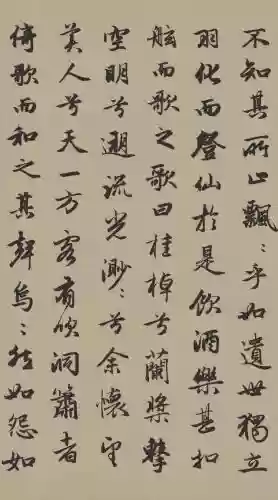 不知其所止飄〻乎如遺世獨立
羽化而登仙於是飲酒樂甚扣
舷而歌之歌曰桂棹兮蘭槳擊
空明兮遡流光渺〻兮余懷望
美人兮天一方客有吹洞簫者
倚歌而和之其聲烏〻然如怨如